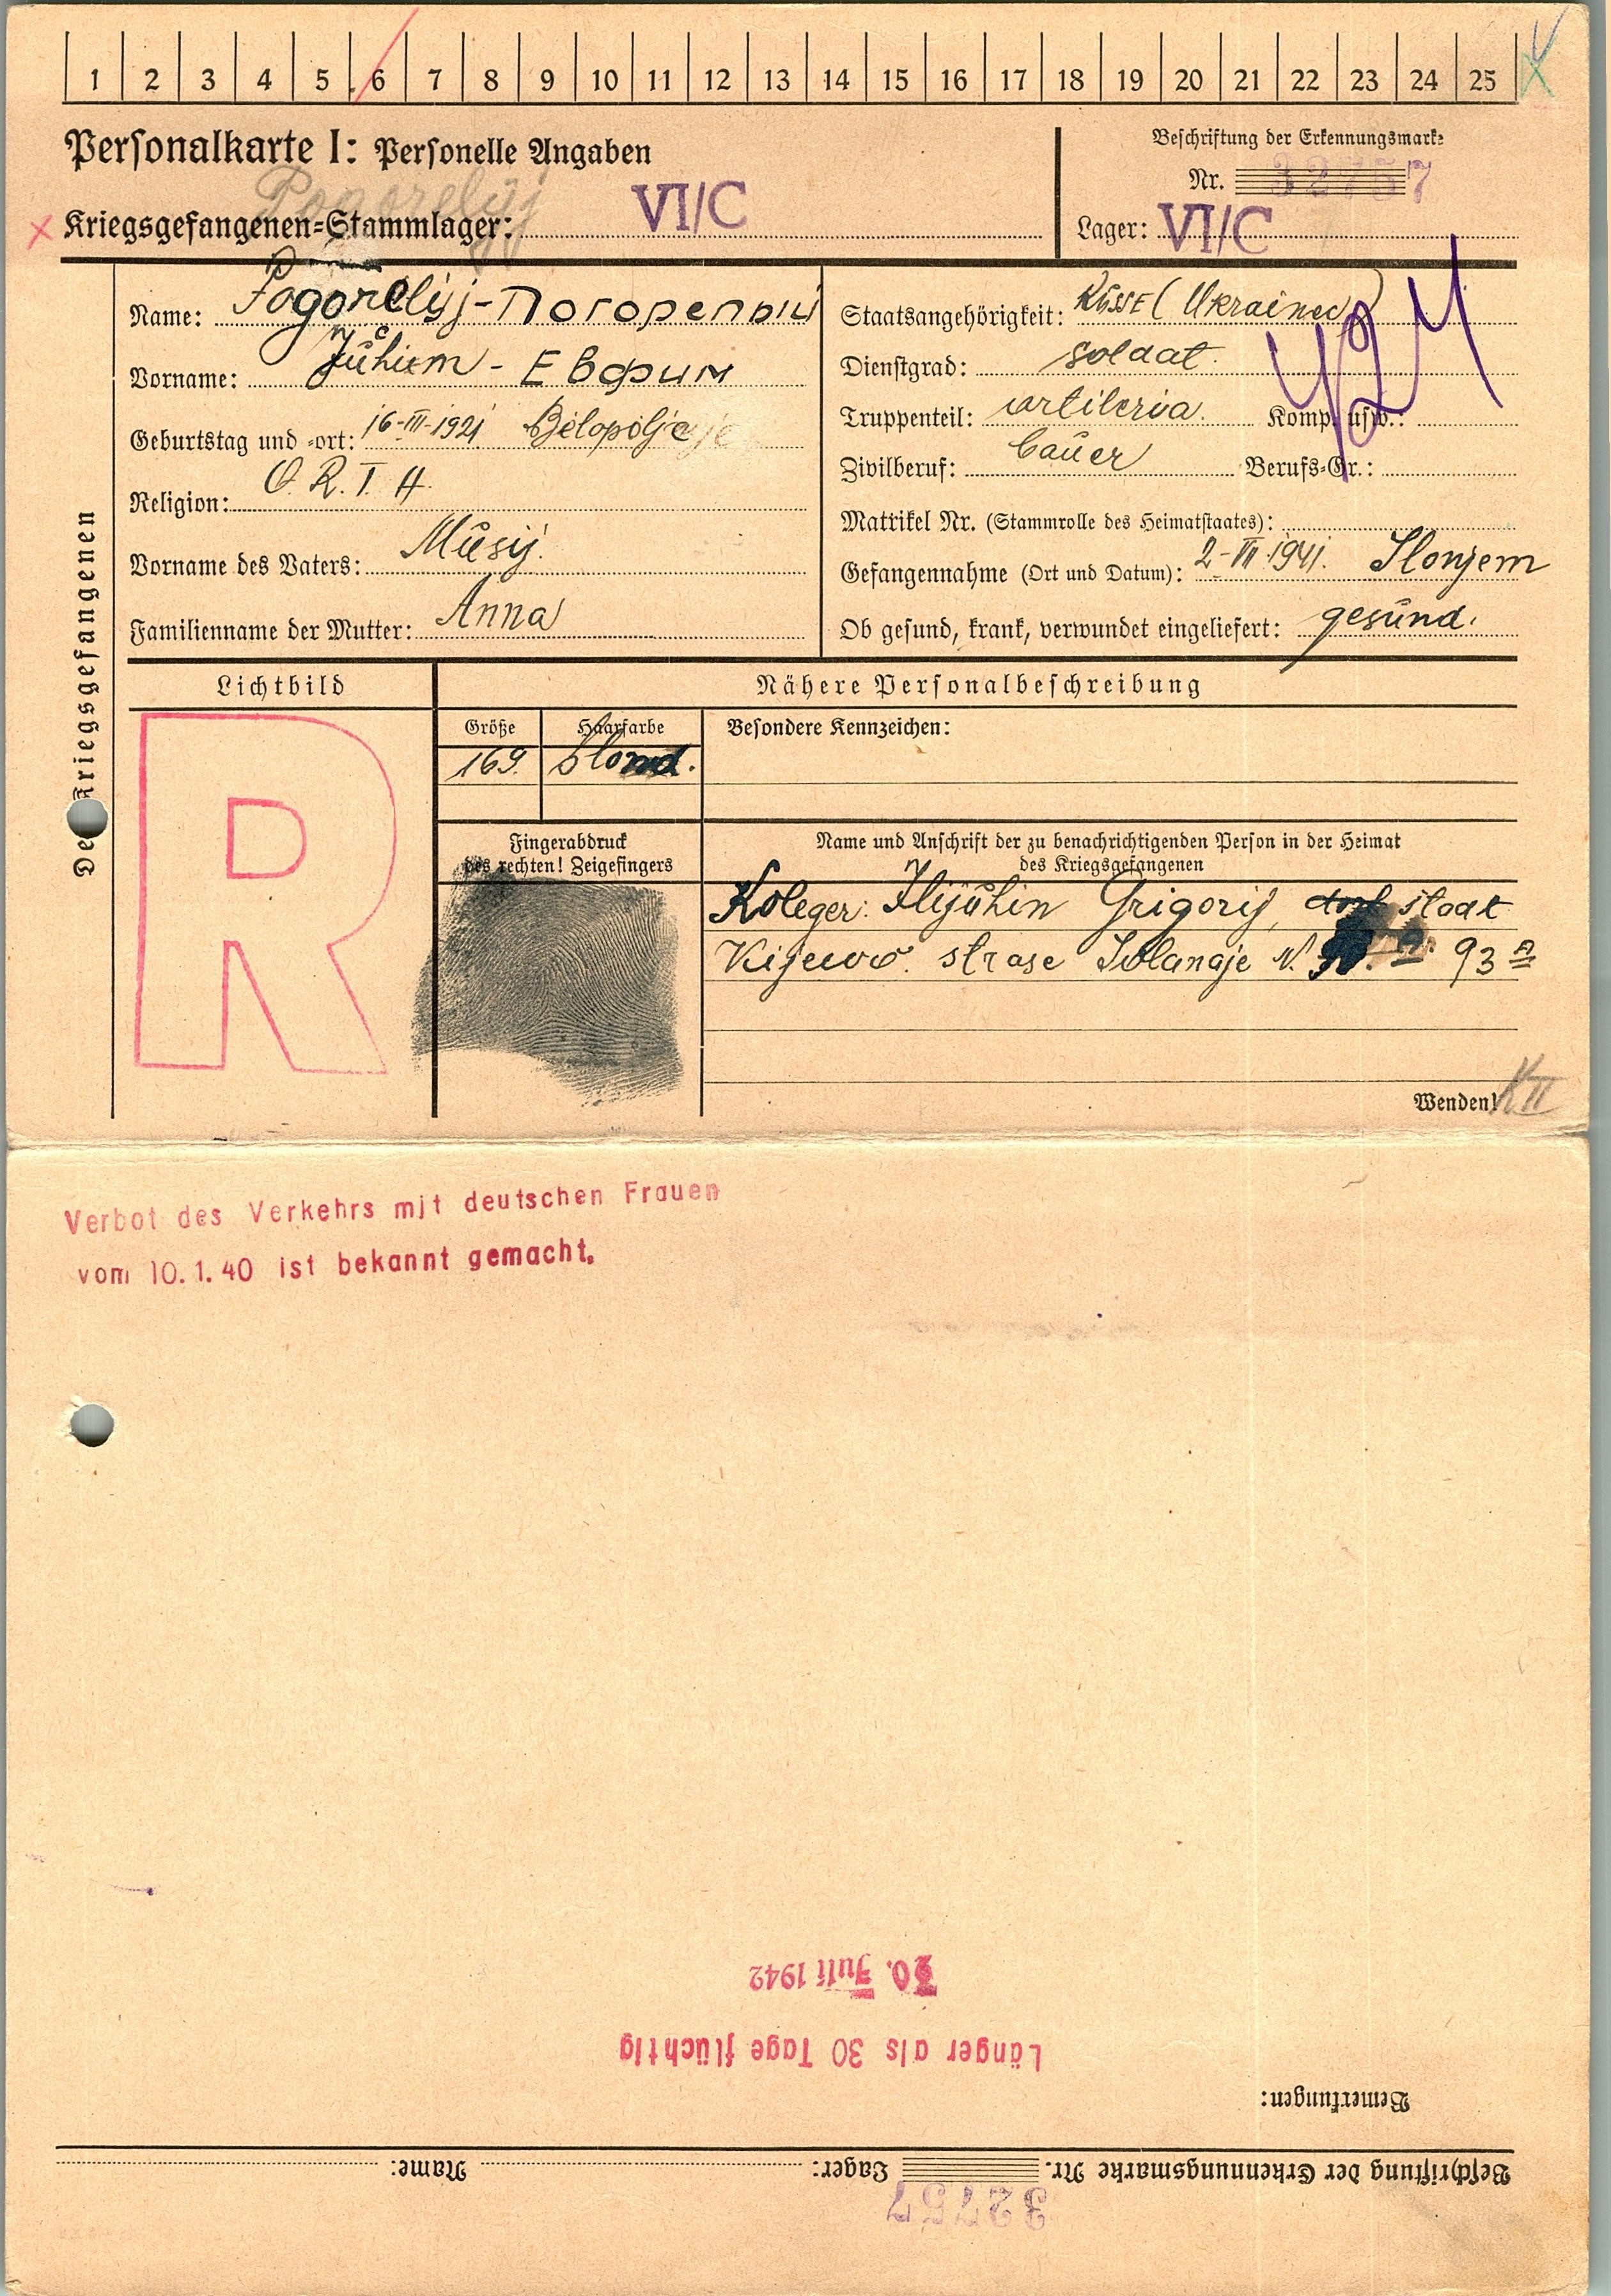 1 2 3 4 5 6 7 8 9 10 11 12 13 14 15 16 17 18 19 20 21 22 23 24 25
Personalkarte I: Personelle Angaben
Beschriftung der Erkennungsmarke
Nr. 32757
Pogorelyj
Kriegsgefangenen-Stammlager: VI/C
Lager: VI/C
Des Kriegsgefangenen
Name: Pogorelyj - Погорелый
Vorname: Juhim - Евфим
Geburtstag und -ort: 16-III-1921 Belopolje
Religion: O.R.T.H.
Vorname des Vaters: Musij
Familienname der Mutter: Anna
Staatsangehörigkeit: Russe (Ukrainec)
Dienstgrad: soldat.
Truppenteil: artileria. Komp. usw.:
Zivilberuf: bauer Berufs-Gr.:
Matrikel Nr. (Stammrolle des Heimatstaates):
Gefangennahme (Ort und Datum): 2-VII-1941. Slonjem
Ob gesund, krank, verwundet eingeliefert: gesund.
Lichtbild
R
Nähere Personalbeschreibung
Größe
169.
Haarfarbe
blond.
Besondere Kennzeichen:
Fingerabdruck
des rechten! Zeigefingers
Name und Anschrift der zu benachrichtigenden Person in der Heimat
des Kriegsgefangenen
Koleger: Iljuhin Grigorij, dorf staat
Kijewo. strase N. 93 A
Wenden!
K II
Verbot des Verkehrs mit deutschen Frauen
vom 10.1.40 ist bekannt gemacht.
Beschriftung der Erkennungsmarke Nr. 32757 Lager: Name:
Bemerkungen:
Länger als 30 Tage flüchtig
30. Juli 1942